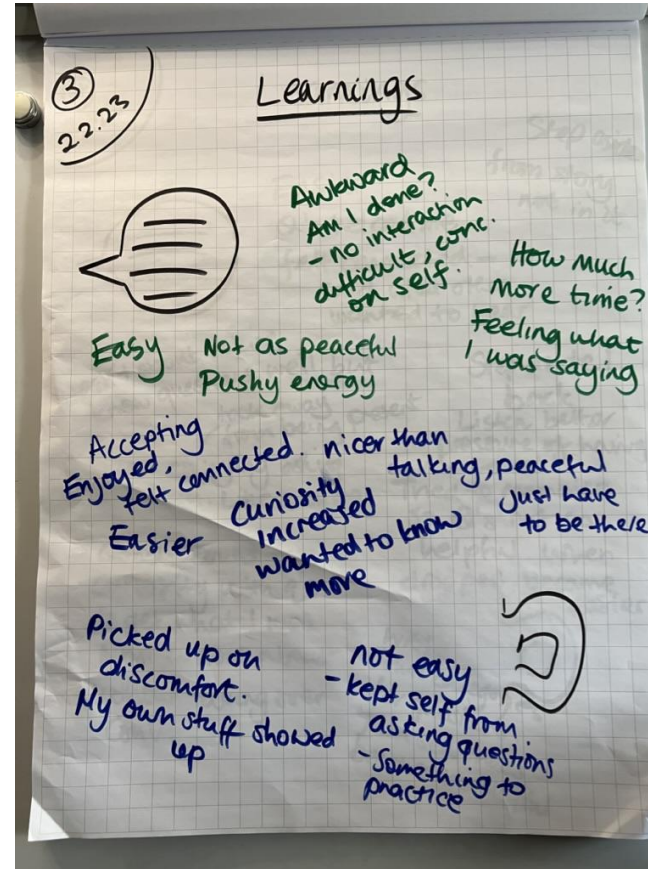 3
22.23
Learnings
Awkward
Am I done?
- no interaction
difficult, conc.
on self.
How much
more time?
Feeling what
I was saying
Easy
Not as peaceful
Pushy energy
Accepting
Enjoyed,
felt connected.
nicer than
talking, peaceful
Just have
to be there
Easier
Curiosity
increased
wanted to know
more
Picked up on
discomfort.
My own stuff showed
up
not easy
- kept self from
asking questions
- Something to
practice